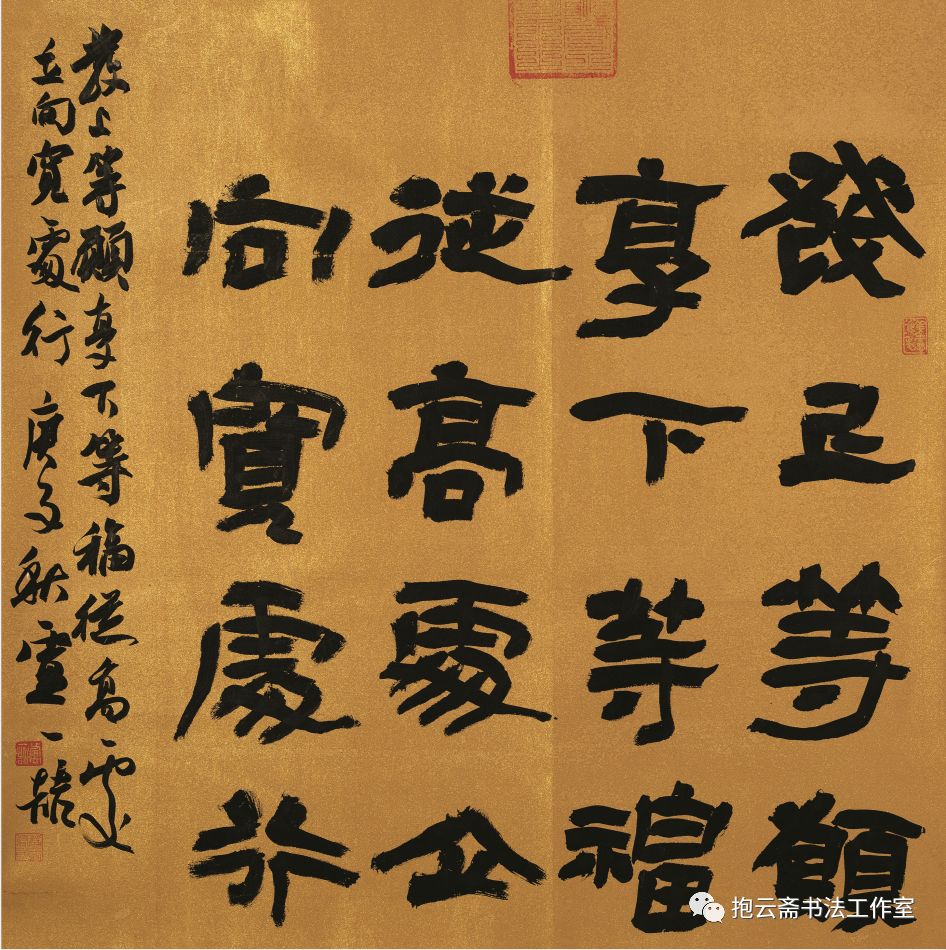 發上等願
享下等福
從高處立
向寬處行
發上等願享下等福從高處
立向寬處行庚子秋
抱云斋书法工作室